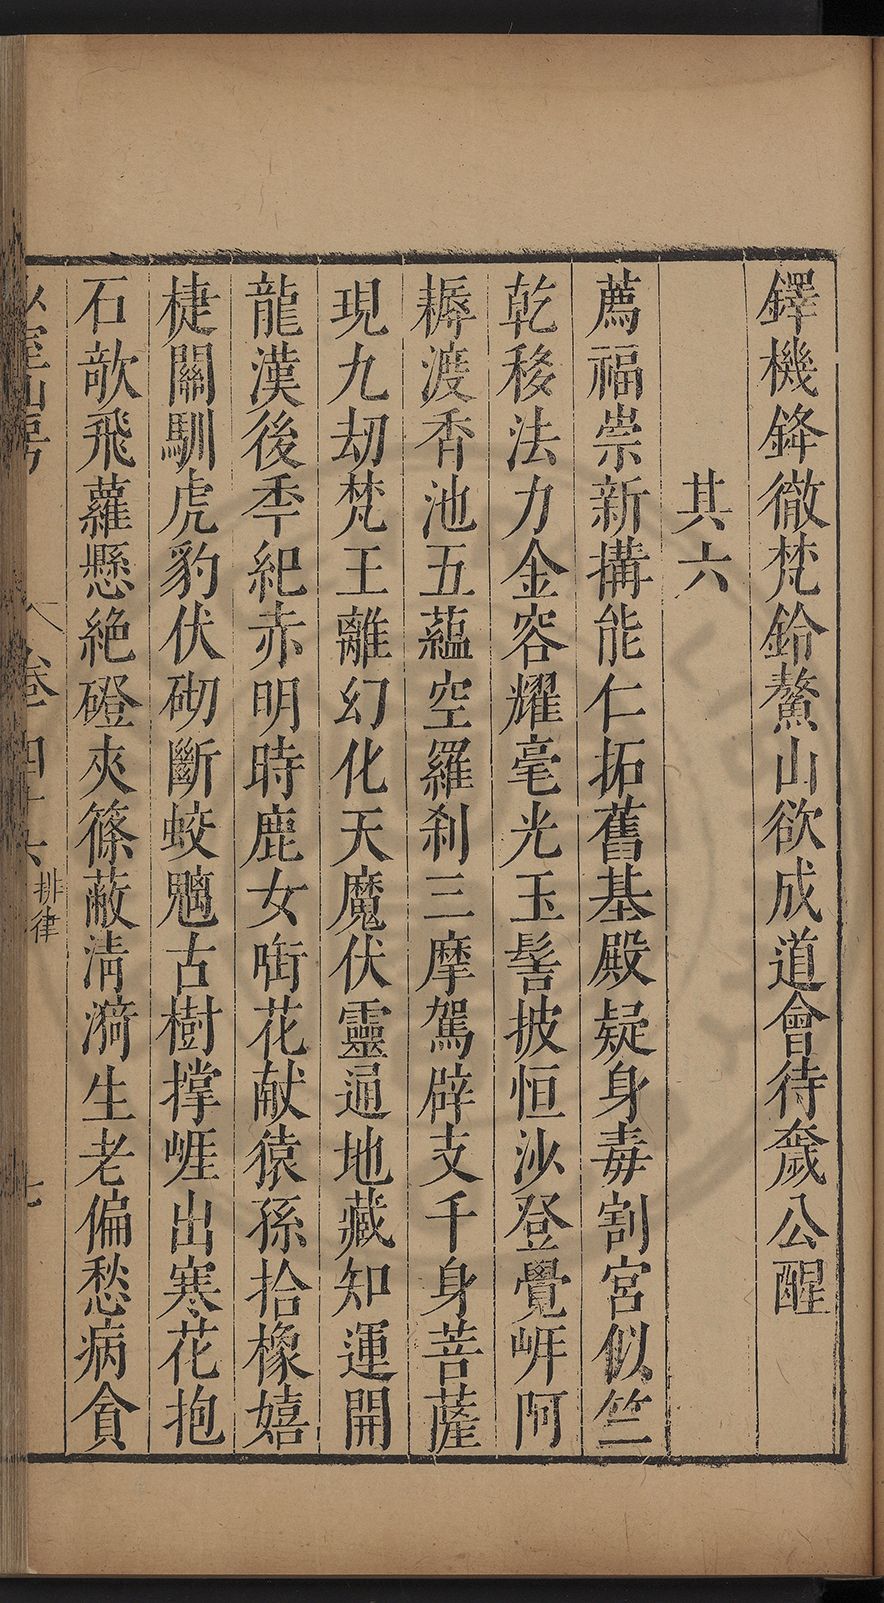 鐸機鋒徹梵鈴鰲山欲成道會待奯公醒
其六
薦福崇新搆能仁拓舊基殿疑身毒割宮似竺
乾移法力金容耀毫光玉髻披恒沙登覺岸阿
耨渡香池五蘊空羅刹三摩駕辟支千身菩薩
現九劫梵王離幻化天魔伏靈通地藏知運開
龍漢後秊紀赤明時鹿女啣花献猿孫拾橡嬉
楗關馴虎豹伏砌斷蛟魑古樹撑崕出寒花抱
石欹飛蘿懸絶磴夾篠蔽淸漪生老偏愁病貪
少室山房
卷四十六
排律
七